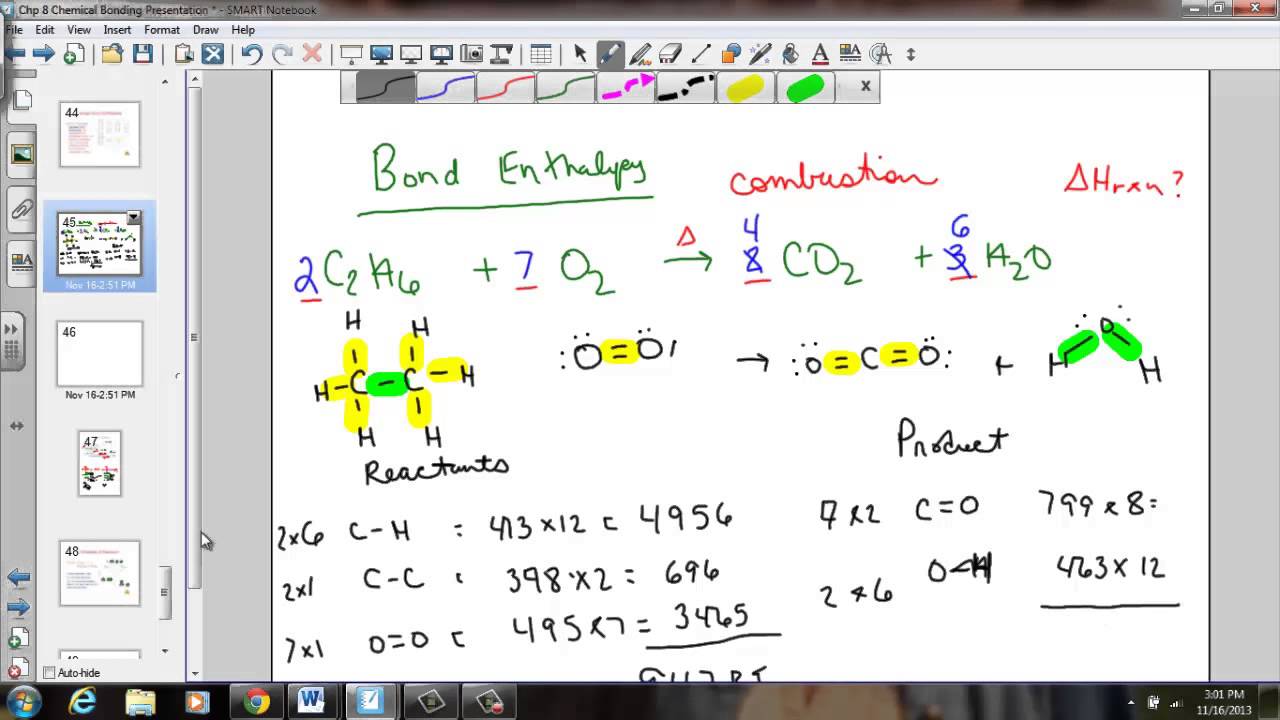 Chp 8 Chemical Bonding Presentation * - SMART Notebook
File Edit View Insert Format Draw Help
x
44
45
Nov 16-2:51 PM
46
Nov 16-2:51 PM
47
48
Auto-hide
Bond Enthalpy combustion ΔHrxn?
4 6
2C2H6 + 7 O2 Δ→ 8 CO2 + 3 H2O
H H
H-C-C-H :O=O → :O=C=O: + H O H
H H
Reactants Product
2x6 C-H = 413x12 = 4956 7x2 C=O 799x8=
2x1 C-C = 398x2 = 696 2x6 O-H 463x12
7x1 O=O = 495x7 = 3465
3:01 PM
11/16/2013